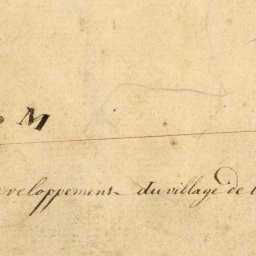 M
veloppement du village de